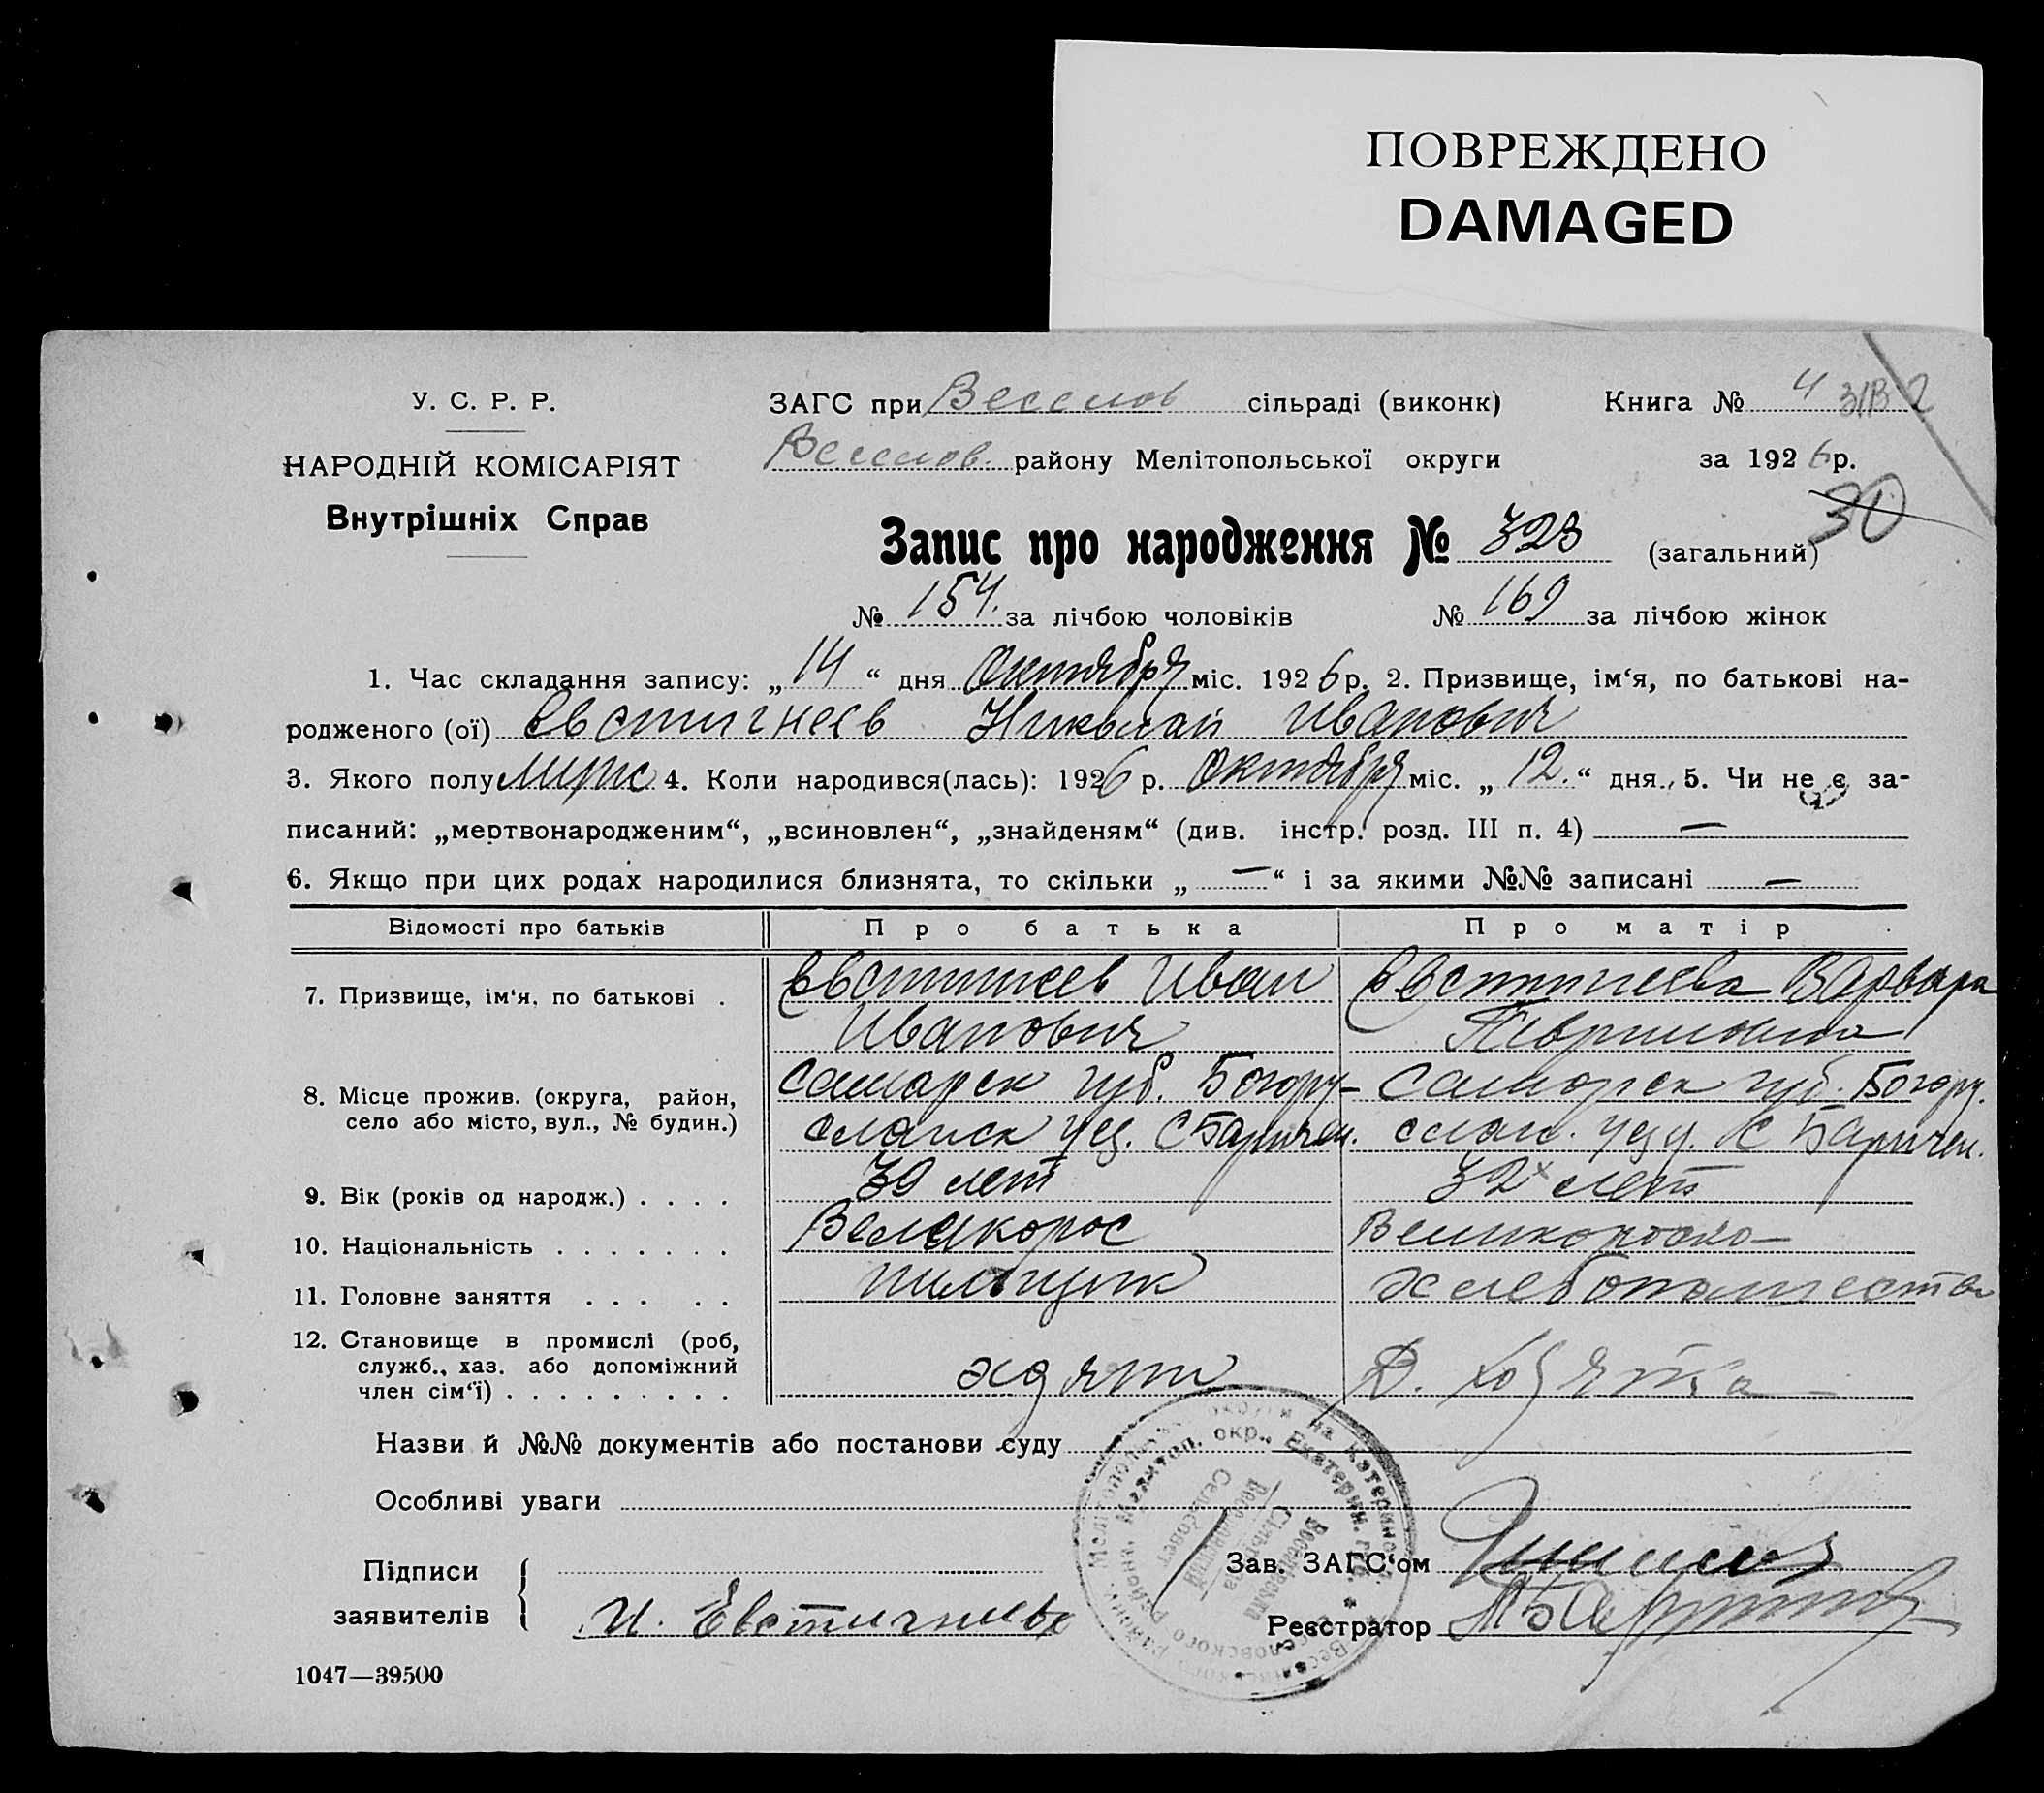 ПОВРЕЖДЕНО
DAMAGED
У. С. Р. Р.
НАРОДНІЙ КОМІСАРІЯТ
Внутрішніх Справ
ЗАГС при Веселов сільраді (виконк)
Книга № 4
Веселов. району Мелітопольської округи
за 1926 р.
30
Запис про народження № 323 (загальний)
№ 154. за лічбою чоловіків № 169 за лічбою жінок
1. Час складання запису: „14“ дня Октября міс. 1926 р. 2. Призвище, ім‘я, по батькові на-
родженого (ої) Евстигнеев Николай Иванович
3. Якого полу Мужс 4. Коли народився(лась): 1926 р. Октября міс. „12.“ дня., 5. Чи не є за-
писаний: „мертвонародженим“, „всиновлен“, „знайденям“ (див. інстр. розд. III п. 4) —
6. Якщо при цих родах народилися близнята, то скільки „—“ і за якими №№ записані —
Відомості про батьків Про батька Про матір
7. Призвище, ім‘я, по батькові . Евстигнеев Иван Евстигнеева Варвара
Иванович
8. Місце прожив. (округа, район, Самарск губ. Богуру- Самарск губ. Богуру.
село або місто, вул., № будин.) сланск уез.
9. Вік (років од народж.) . . . . 39 лет 32х лет
10. Національність . . . . . . . Великорос Великороска
11. Головне заняття . . . . . пильщик хлебопашество
12. Становище в промислі (роб,
служб., хаз. або допоміжний
член сім‘ї) . . . . . . . . .
Назви й №№ документів або постанови суду
Особливі уваги
Підписи
заявителів
И. Евстигнеев
Зав. ЗАГС‘ом
Реєстратор
1047—39500